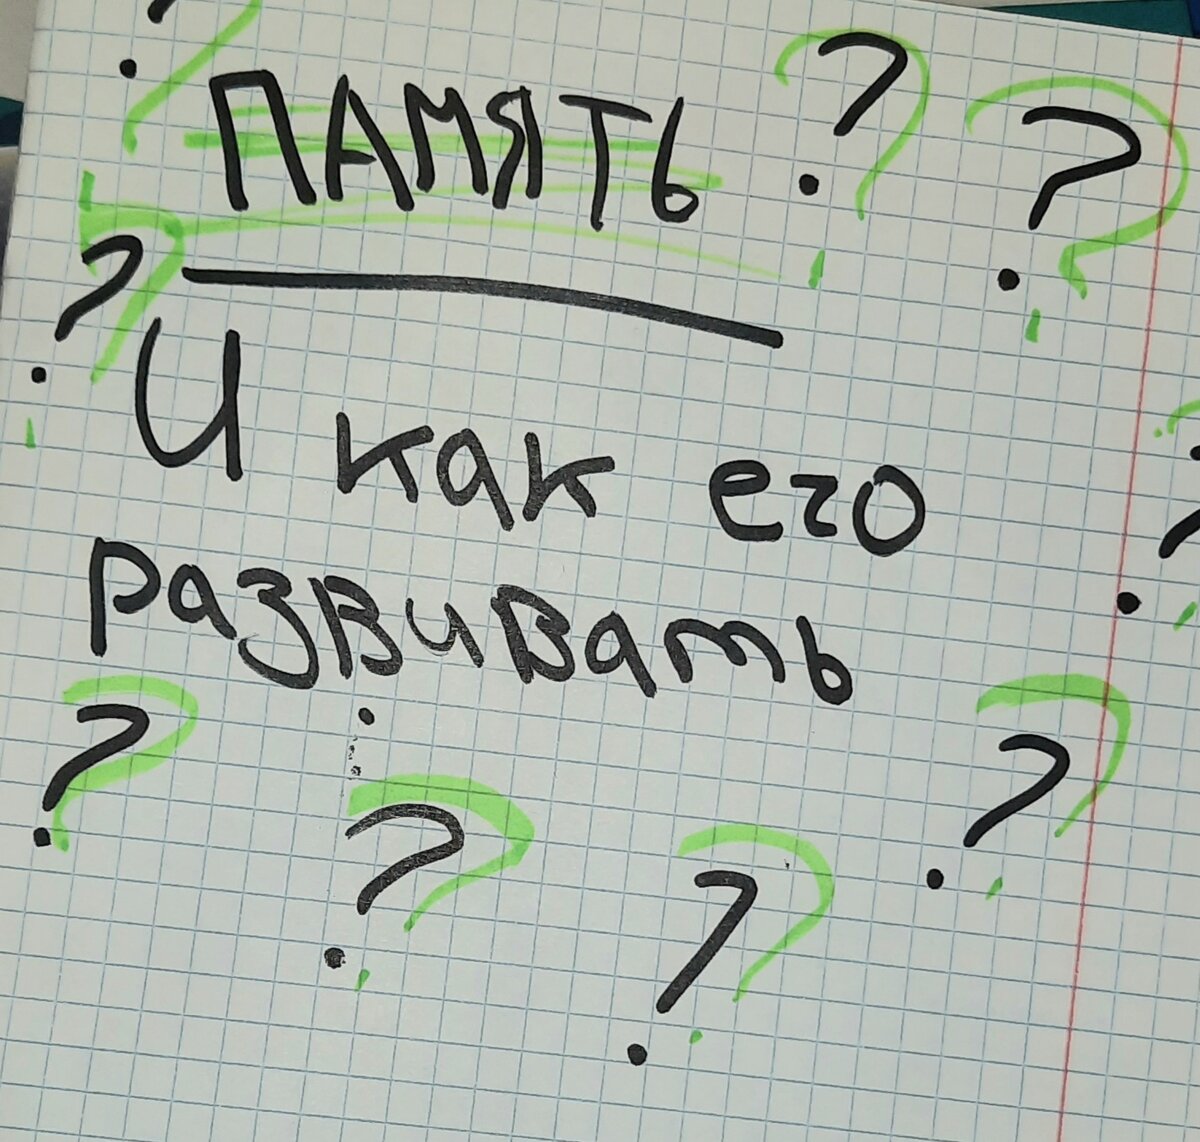 ПАМЯТЬ ? ?
?
?
И как его
развивать
?
? ? ? ?